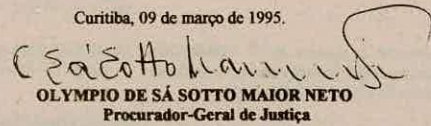 Curitiba, 09 de março de 1995.
OLYMPIO DE SÁ SOTTO MAIOR NETO
Procurador-Geral de Justiça